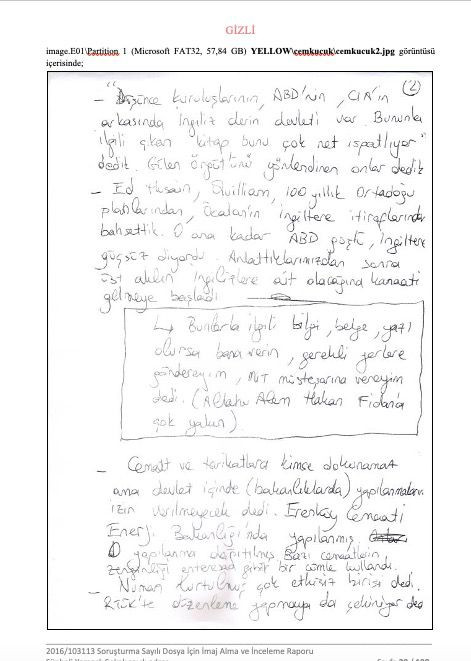 GİZLİ
image.E01\Partition 1 (Microsoft FAT32, 57,84 GB) YELLOW\cemkucuk\cemkucuk2.jpg görüntüsü
içerisinde;
(2)
"
- Düşünce kuruluşlarının, ABD'nin, CIA'in
arkasında İngiliz derin devleti var. Bununla
ilgili çıkan kitap bunu çok net ispatlıyor"
dedik. Gülen örgütünü yönlendiren onlar dedik
- Ed Husain, Quilliam, 100 yıllık Ortadoğu
planlarından, Öcalan'ın İngiltere itiraflarından
bahsettik. O ana kadar ABD , İngiltere
güçsüz diyordu. Anlattıklarımızdan sonra
üst aklın İngilizlere ait olacağına kanaati
gelmeye başladı
↳ Bunlarla ilgili bilgi, belge, yazı
olursa bana verin, gerekli yerlere
göndereyim, MİT müsteşarına vereyim
dedi. (Allahu Alem Hakan Fidan'a
çok yakın).
- Cemaat ve tarikatlara kimse dokunamaz
ama devlet içinde (bakanlıklarda) yapılanmaları
izin verilmeyecek dedi. Erenköy Cemaati
Enerji Bakanlığı'nda yapılanmış
O yapılanma dağıtılmış Bazı cemaatlerin
zenginliği enteresan gibi bir cümle kullandı.
- Numan Kurtulmuş çok etkisiz birisi dedi.
RTÜK'te düzenleme yapmaya da çekiniyor dedi
2016/103113 Soruşturma Sayılı Dosya İçin İmaj Alma ve İnceleme Raporu